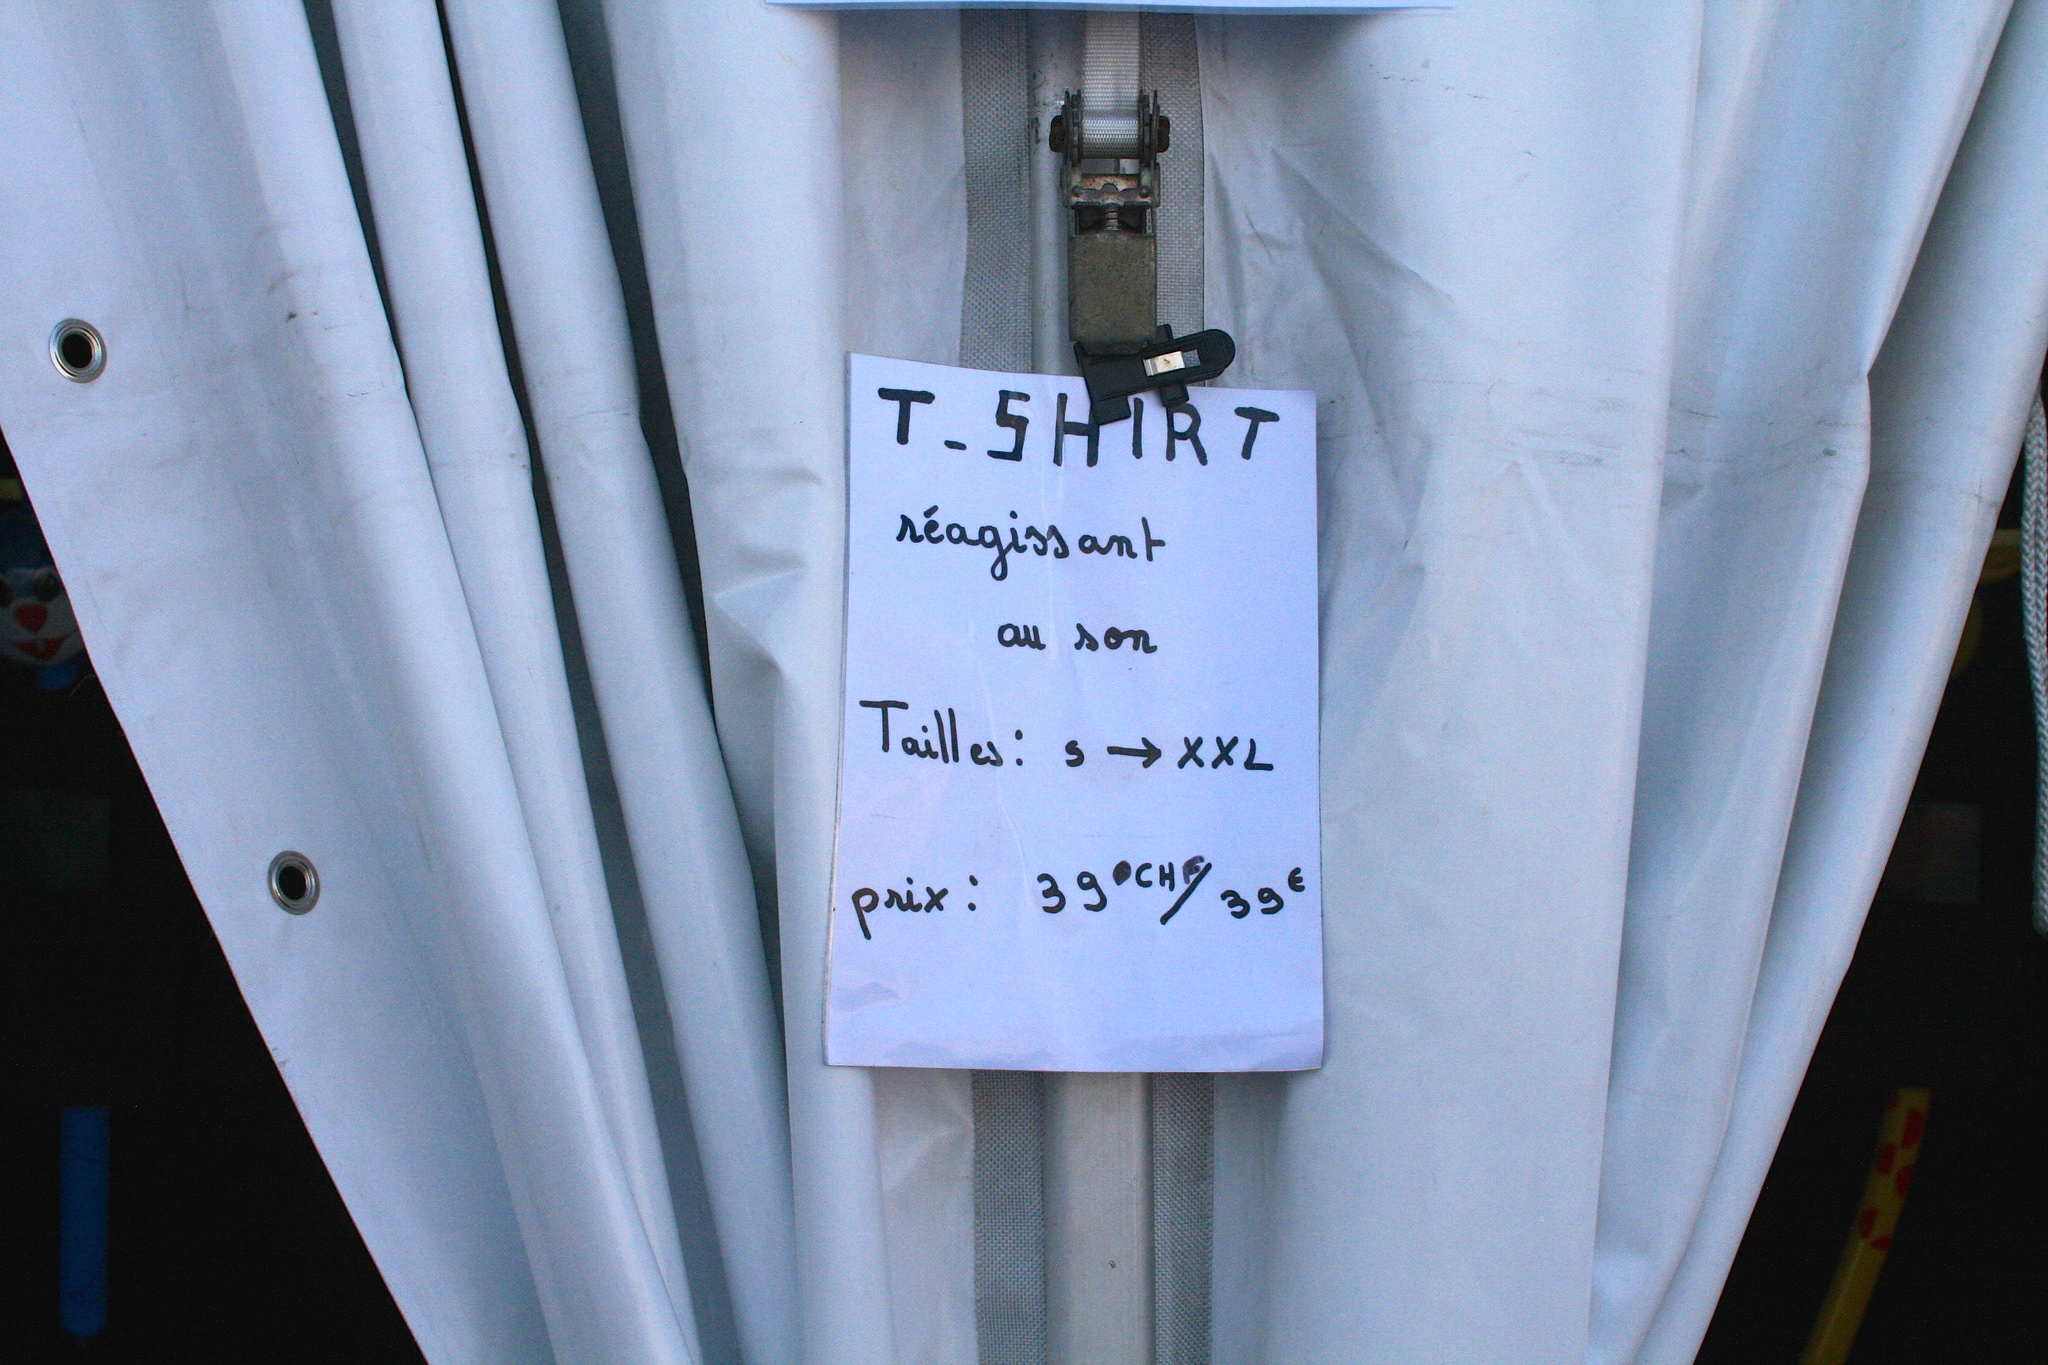 T-SHIRT
réagissant
au son
Tailles: s → XXL
prix: 39 CHF/39€